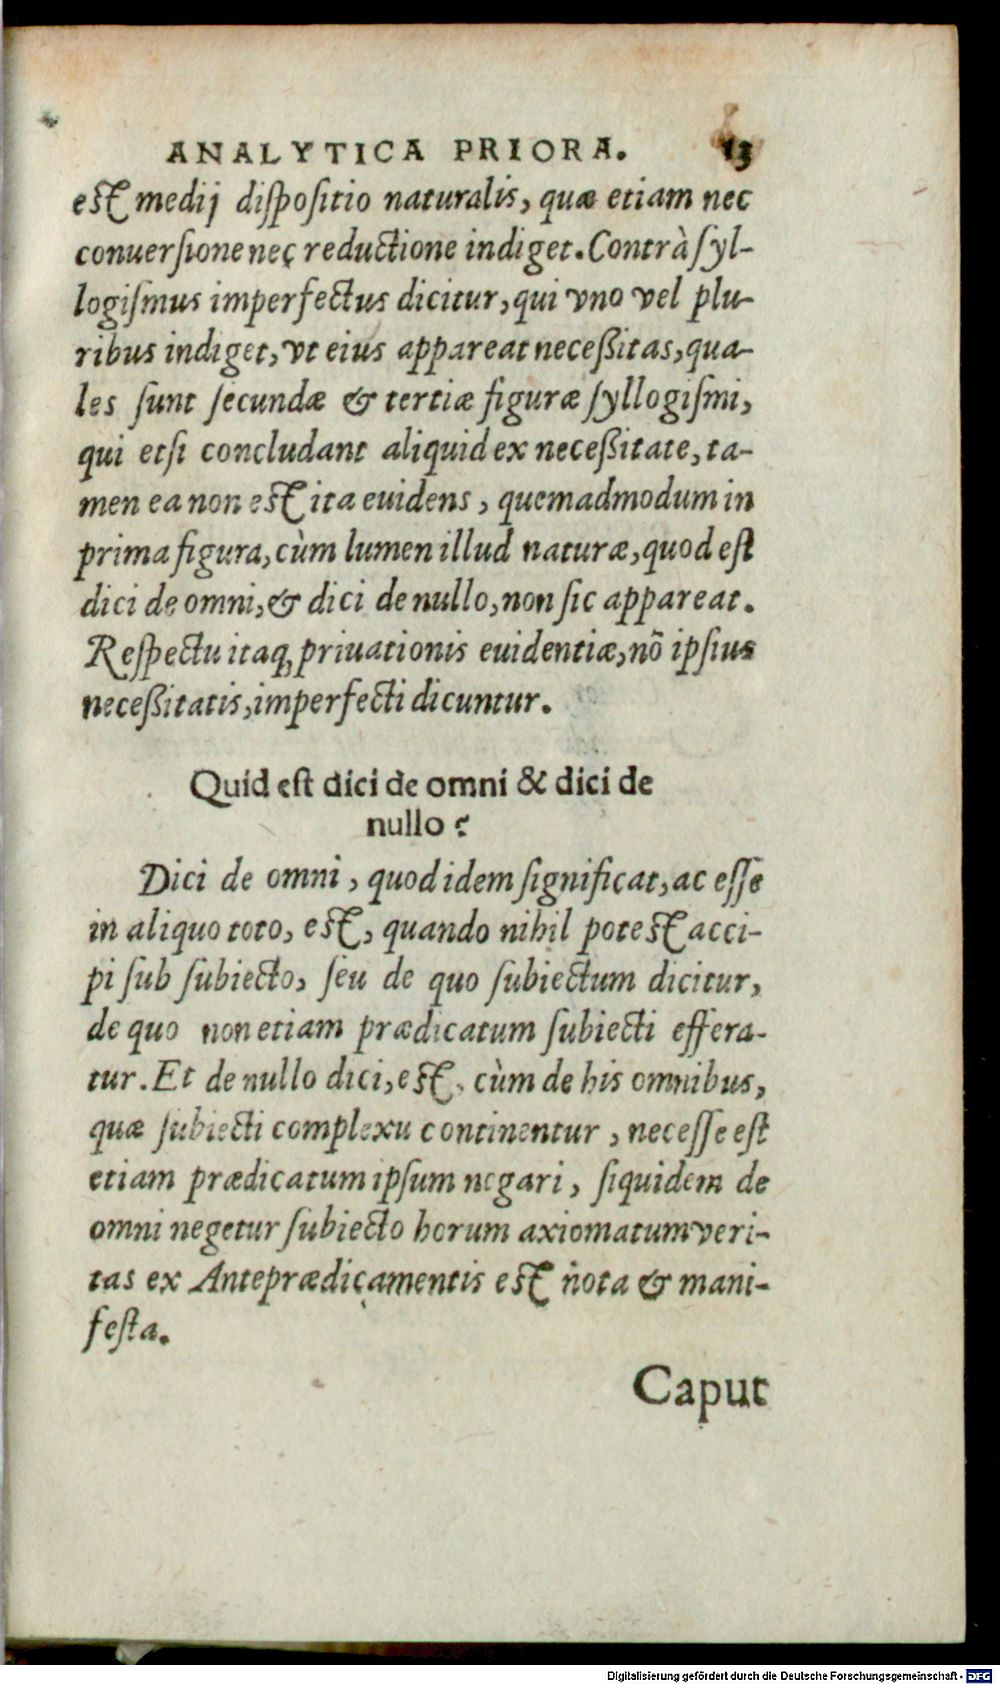 ANALYTICA PRIORA. 13
est medij dispositio naturalis, quæ etiam nec
conuersione nec reductione indiget. Contrà syl-
logismus imperfectus dicitur, qui vno vel plu-
ribus indiget, vt eius appareat necessitas, qua-
les sunt secundæ & tertiæ figuræ syllogismi,
qui etsi concludant aliquid ex necessitate, ta-
men ea non est ita euidens, quemadmodum in
prima figura, cùm lumen illud naturæ, quod est
dici de omni, & dici de nullo, non sic appareat.
Respectu itaq; priuationis euidentiæ, nõ ipsius
necessitatis, imperfecti dicuntur.
Quid est dici de omni & dici de
nullo?
Dici de omni, quod idem significat, ac esse
in aliquo toto, est, quando nihil potest acci-
pi sub subiecto, seu de quo subiectum dicitur,
de quo non etiam prædicatum subiecti effera-
tur. Et de nullo dici, est, cùm de his omnibus,
quæ subiecti complexu continentur, necesse est
etiam prædicatum ipsum negari, siquidem de
omni negetur subiecto horum axiomatum veri-
tas ex Anteprædicamentis est nota & mani-
festa.
Caput
Digitalisierung gefördert durch die Deutsche Forschungsgemeinschaft - DFG